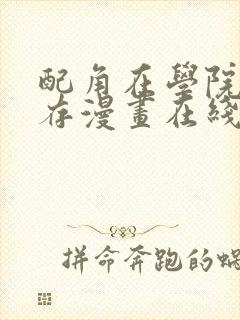 配角在學院
存漫畫在綫
拼命奔跑的蝸